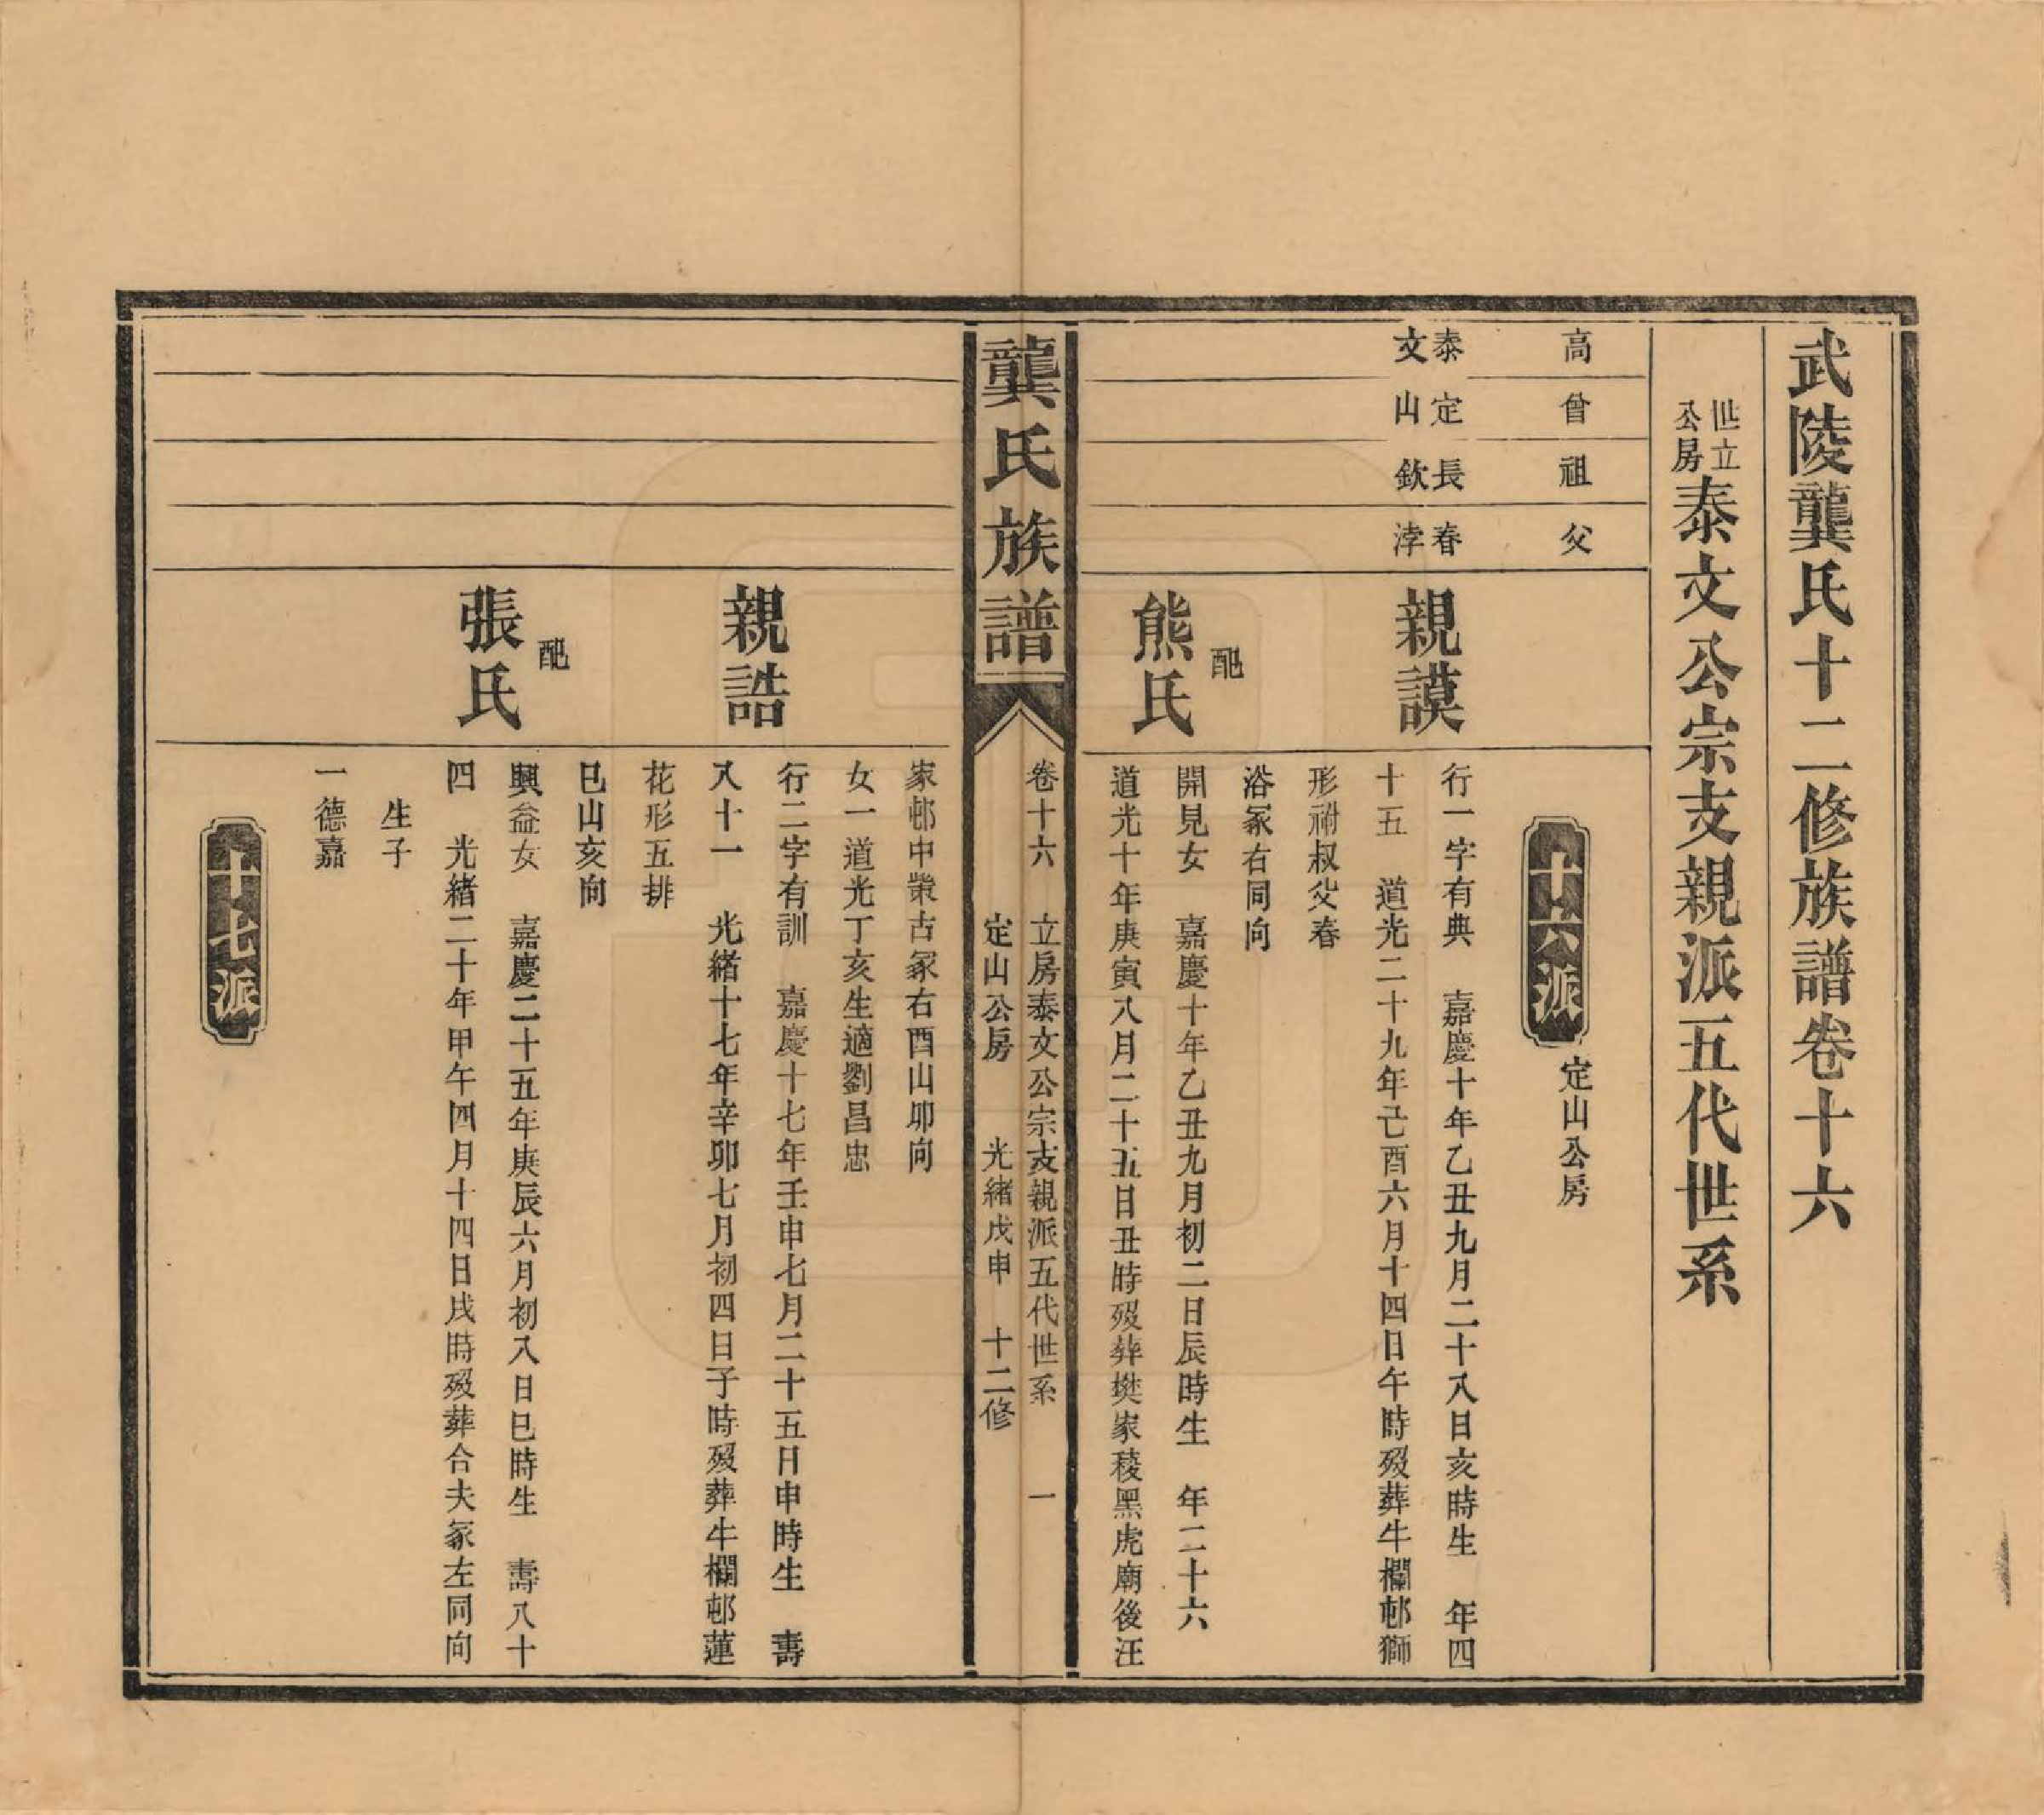 武陵龔氏十二修族譜卷十六
世立公房泰文公宗支親派五代世系
高
曾
祖
父
十六派
定山公房
泰文
定山
長欽
春浡
親謨
行一字有典　嘉慶十年乙丑九月二十八日亥時生　年四
十五　道光二十九年己酉六月十四日午時歿葬牛欄邨獅
形祔叔父春
浴冢右同向
配
熊氏
開見女　嘉慶十年乙丑九月初二日辰時生　年二十六
道光十年庚寅八月二十五日丑時歿葬樊家稜黑虎廟後汪
龔氏族譜
卷十六　立房泰文公宗支親派五代世系　一
定山公房　光緒戊申　十二修
家邨中業古冢右酉山卯向
女一道光丁亥生適劉昌忠
親誥
行二字有訓　嘉慶十七年壬申七月二十五日申時生　壽
八十一　光緒十七年辛卯七月初四日子時歿葬牛欄邨蓮
花形五排
巳山亥向
配
張氏
興益女　嘉慶二十五年庚辰六月初八日巳時生　壽八十
四　光緒二十年甲午四月十四日戌時歿葬合夫冢左同向
生子
一德嘉
十七派